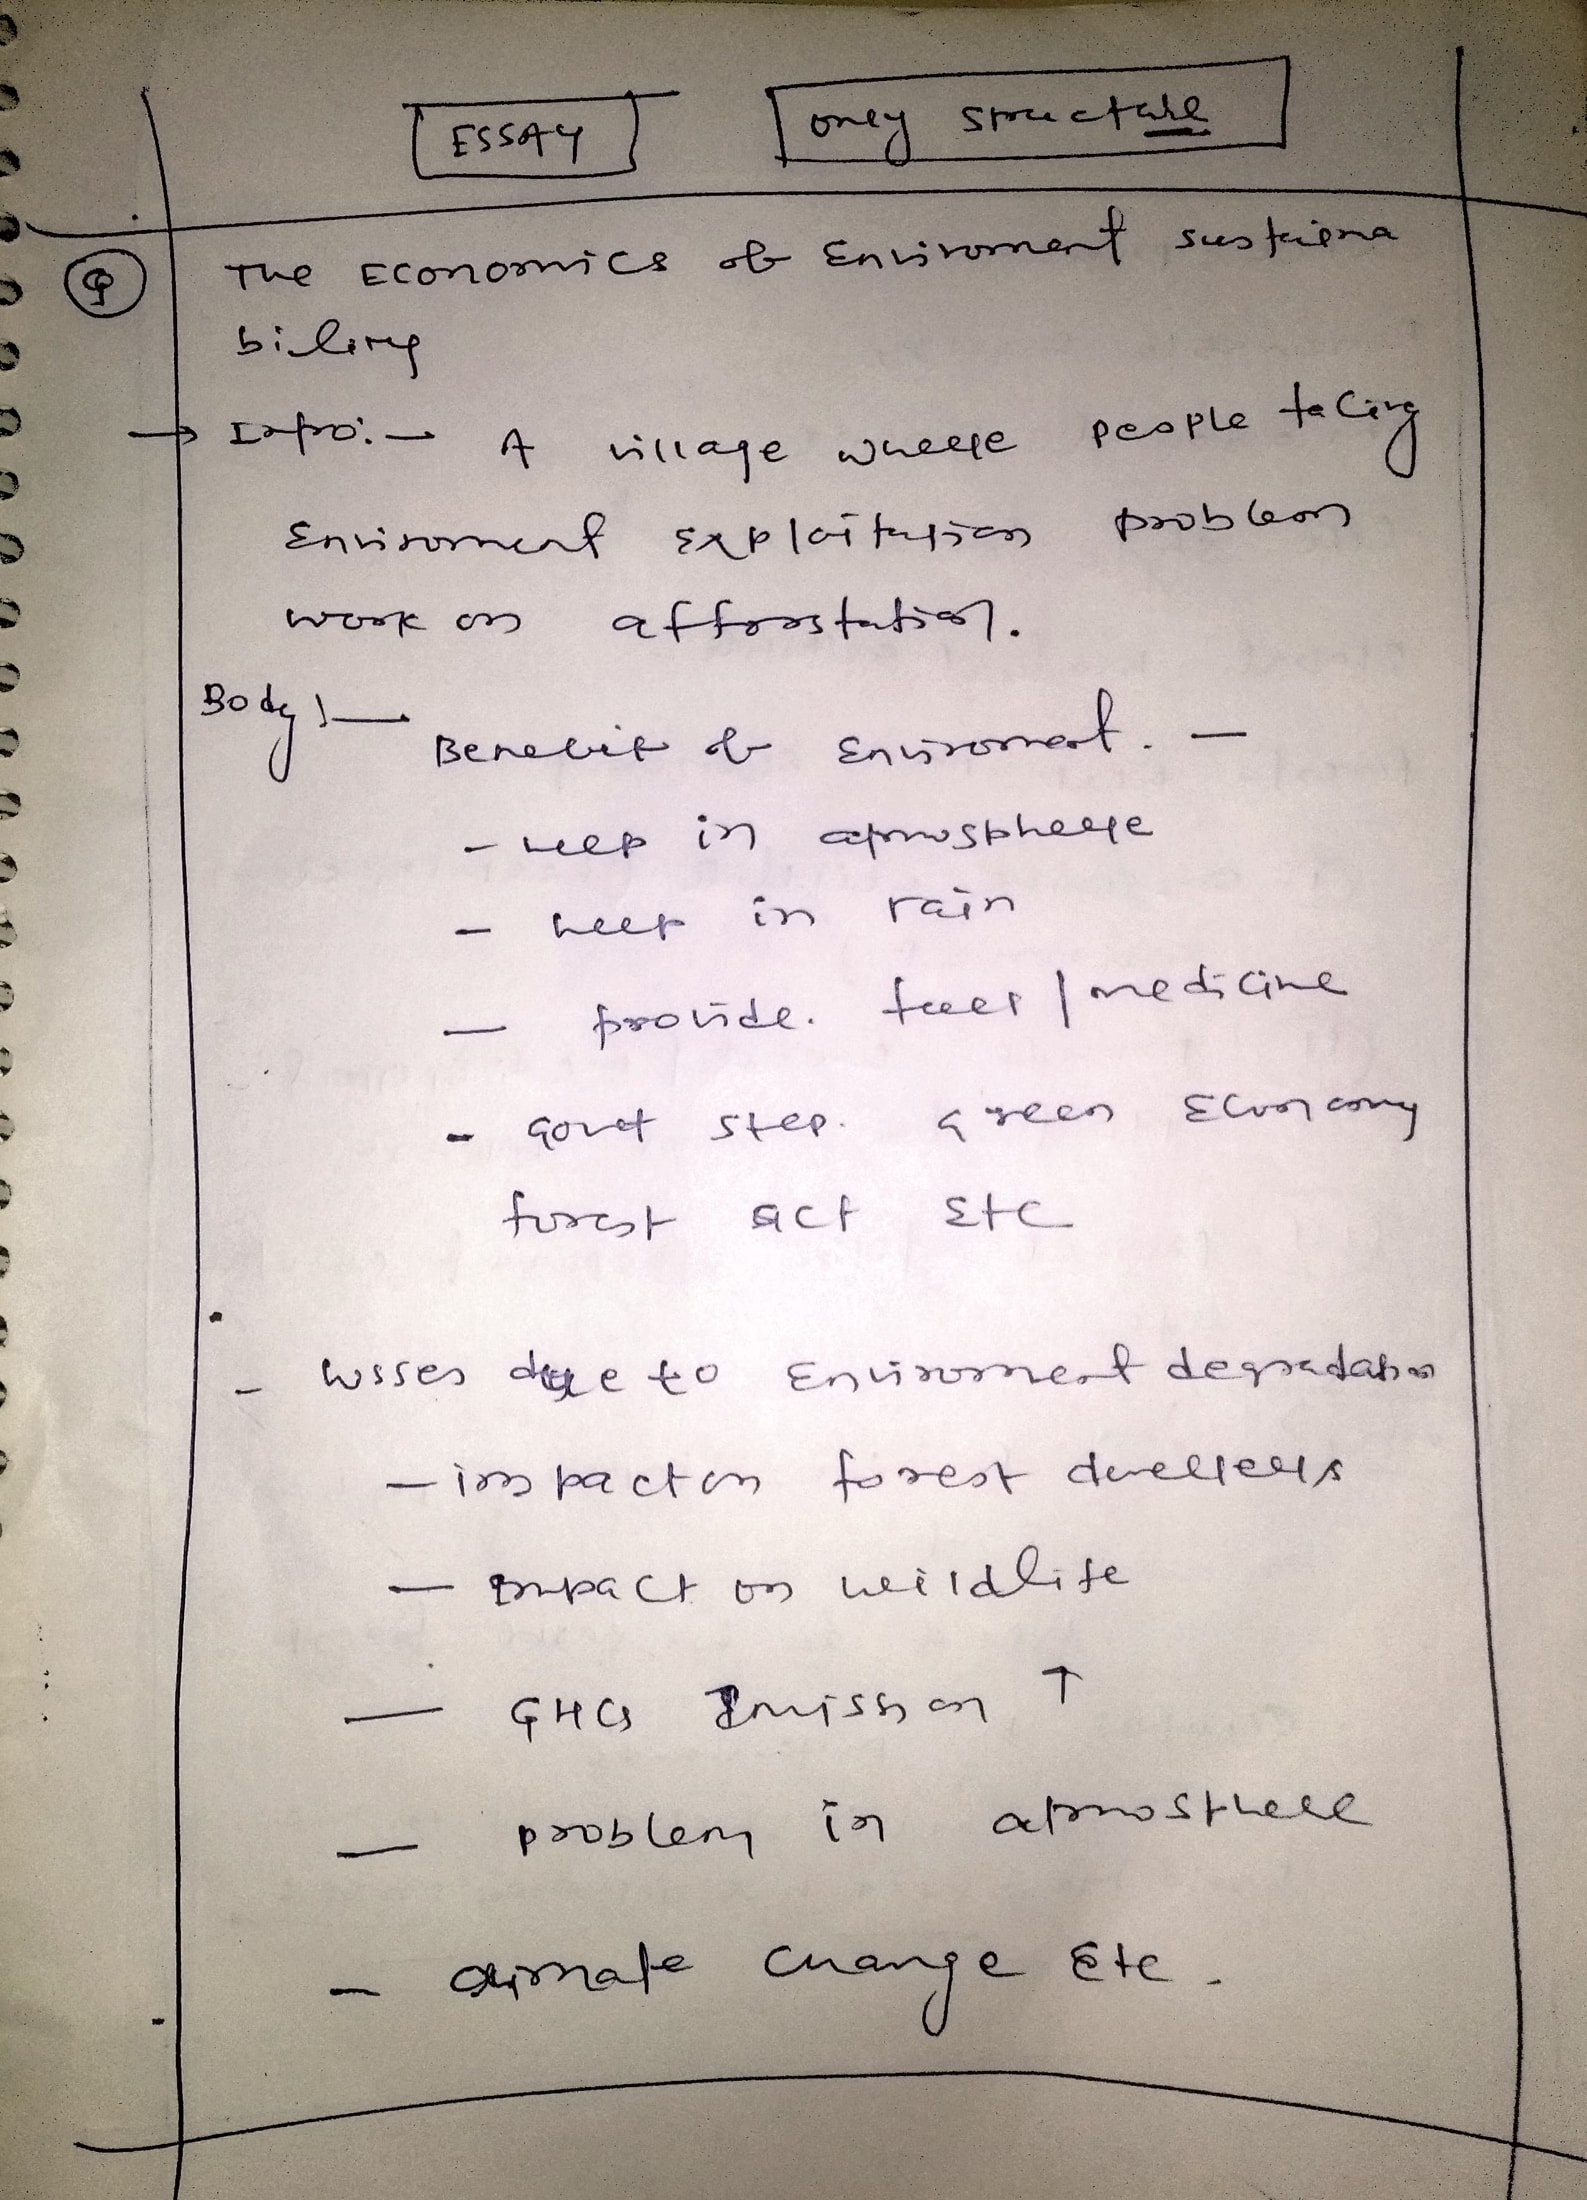 ESSAY
only structure
Q
The Economics of Enviroment sustaina
bility
→ Intro: → A village where people facing
Enviroment Exploitation problem
work on afforstation.
Body :— Benefit of Enviroment. —
- Help in atmosphere
- heep in rain
- provide. fuel / medicine
- Govt step. Green Economy
forest act Etc
- losses due to Enviroment degradation
- impact on forest dwellers
- Impact on wildlife
- GHG Emission ↑
- problem in atmosphere
- climate change Etc.